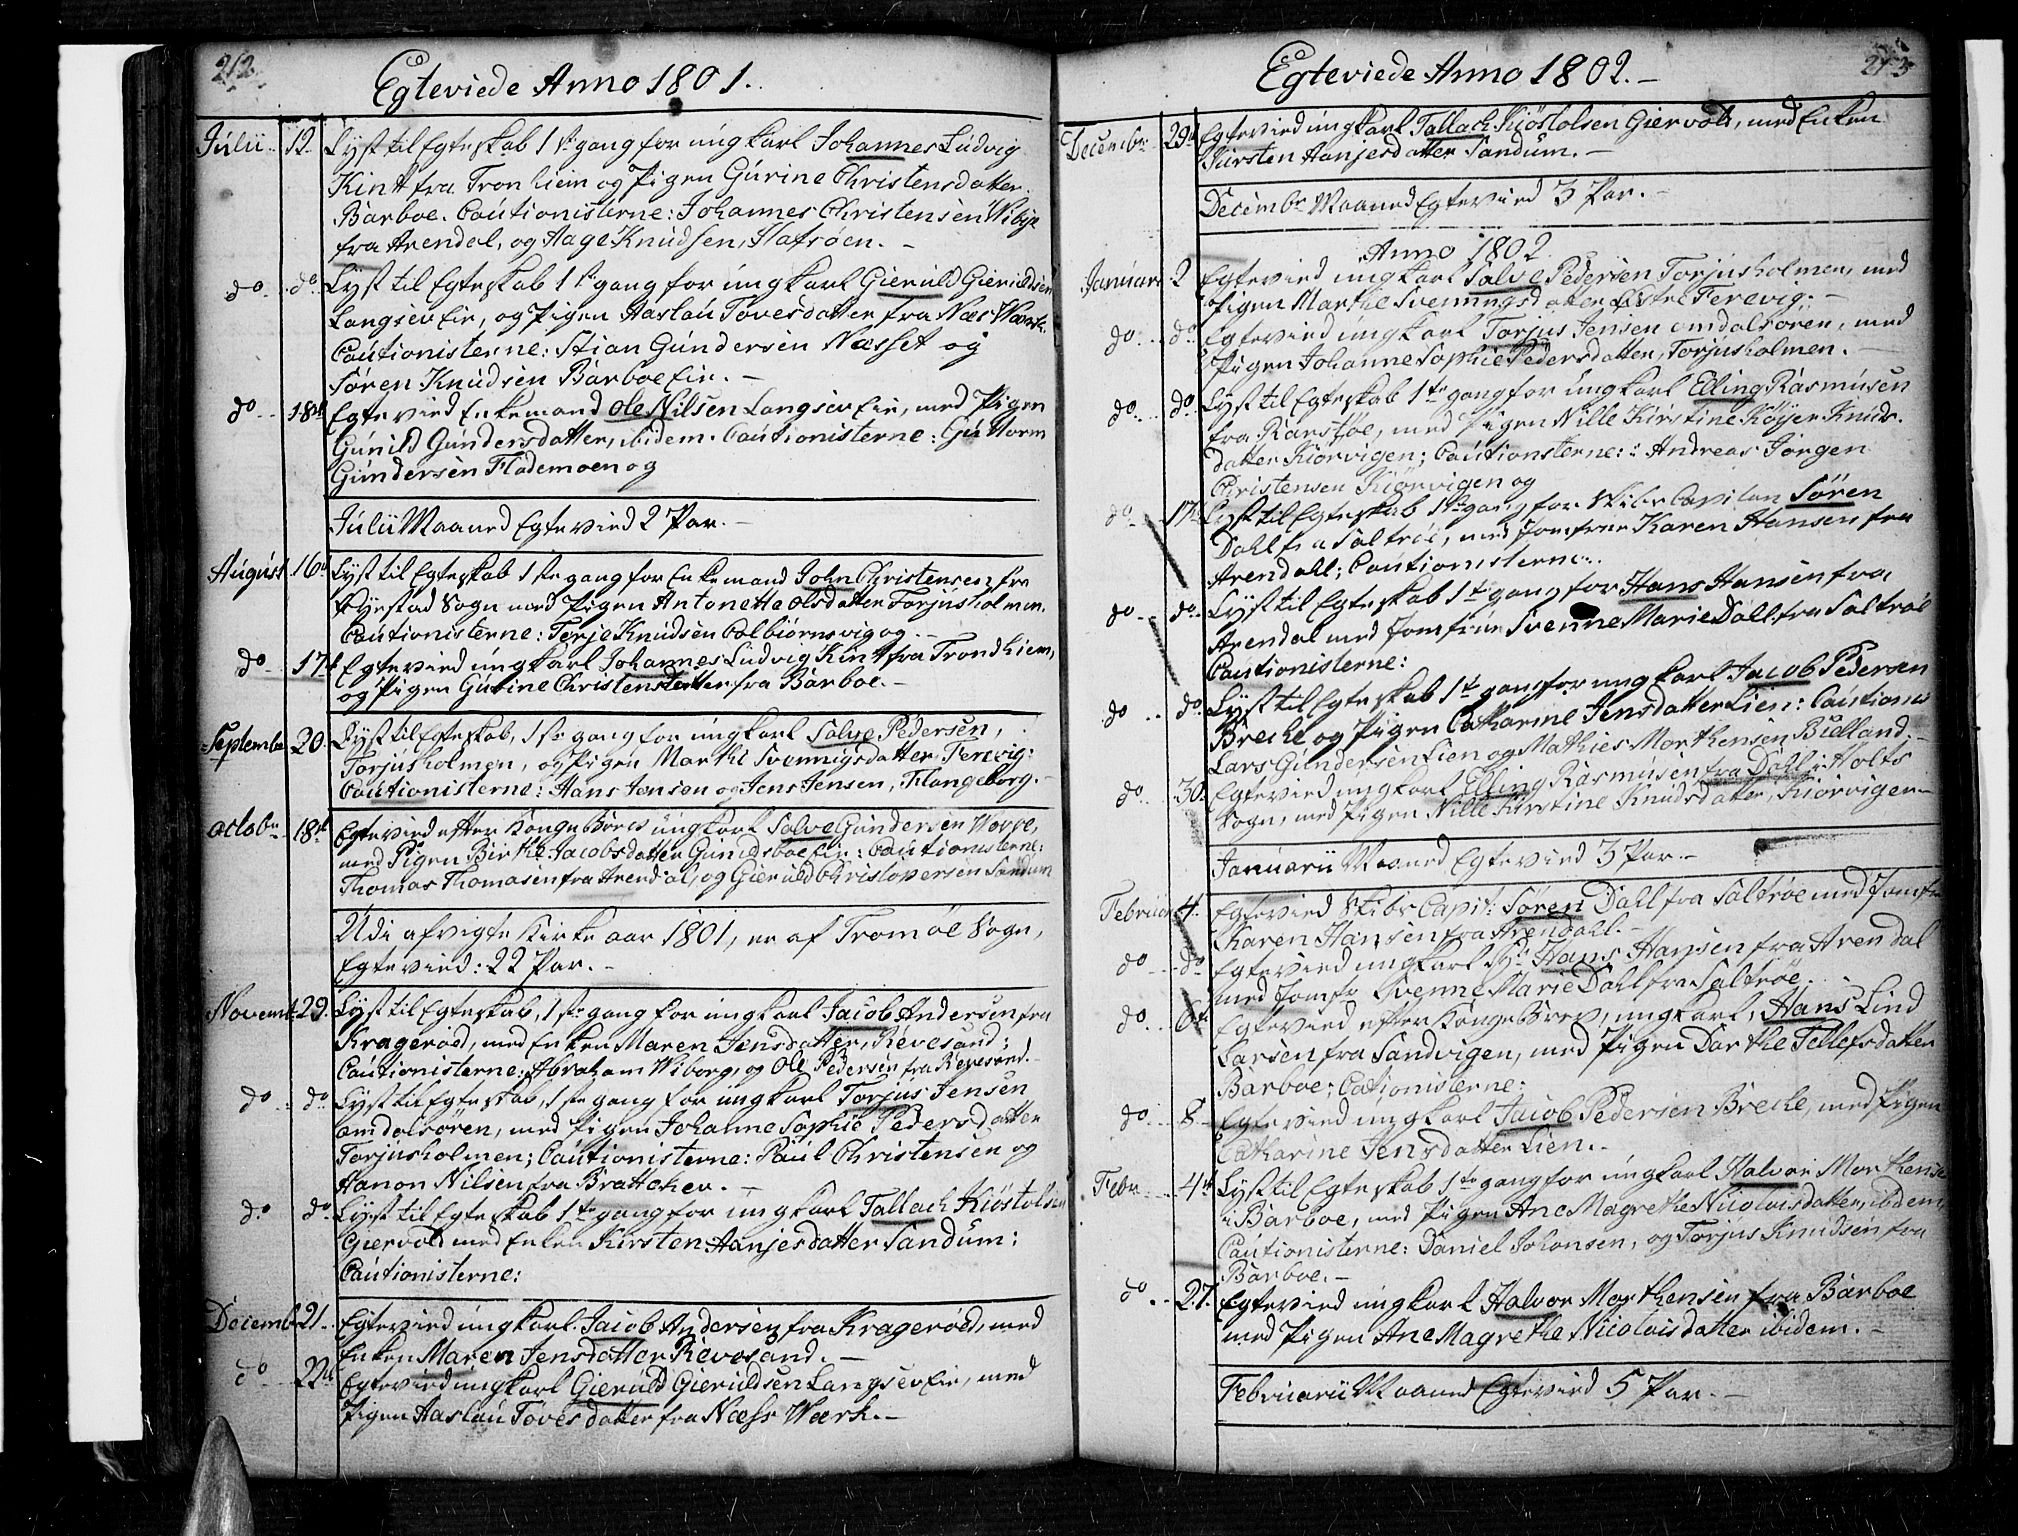 212
Egteviede Anno 1801.
Julii 12 Lyst til Egteskab 1ste gang for ungkarl Johannes Ludvig
Kint fra Tronhiem og Pigen Gurine Christensdatter
Barboe. Cautionisterne: Johannes Christensen Wibye
fra Arendal, og Aage Knudsen, Hafsøen.
do do Lyst til Egteskab 1ste gang for ungkarl Gieruld Gieruldsen
LangsevEie, og Pigen Aaslau Tovesdatter fra Næs Wærk.
Cautionisterne: Stian Gundersen Næsset og
Søren Knudsen BarboeEie.
do 18de Egteviet Enkemand Ole Nilsen LangsevEie, med Pigen
Gunild Gundersdatter, ibidem. Cautionisterne: Guttorm
Gundersen Flødemoen og
Julii Maaned Egteviet 2 Par.
August 16de Lyst til Egteskab 1ste gang for Enkemand John Christensen fra
Øyestad Sogn med Pigen Antonette Olsdatter Torjusholmen.
Cautionisterne: Terje Knudsen Colbiørnsvig og
do 17de Egteviet ungkarl Johannes Ludvig Kint fra Trondhiem,
og Pigen Gurine Christensdatter fra Barboe.
Septembr 20. Lyst til Egteskab, 1ste gang for ungkarl Salve Pedersen,
Torjusholmen, og Pigen Marthe Svennigsdatter Tervig:
Cautionisterne: Hans Jensen og Jens Jensen, Flangeborg.
Octobr 18de Egteviet efter Konge Brev ungkarl Salve Gundersen Worre,
med Pigen Birthe Jacobsdatter GunildsboeEie: Cautionisterne:
Thomas Thomasen fra Arendal, og Gieruld Christopersen Sandum
Udi afvigte Kirke aar 1801, er af Tromøe Sogn,
Egteviet: 22 Par.
Novemb 29. Lyst til Egteskab, 1ste gang for ungkarl Jacob Andersen fra
Kragerøe, med Enken Maren Jensdatter, Revesand:
Cautionisterne: Abraham Wiborg, og Ole Pedersen fra Revesand.
do do Lyst til Egteskab, 1ste gang for ungkarl Torjus Jensen
Omdalsøren, med Pigen Johanne Sophie Pedersdatter
Torjusholmen; Cautionisterne: Paul Christensen og
Hanon Nilsen fra Brattekley.
do do Lyst til Egteskab 1ste gang for ungkarl Tallach Kiøstolsen
Giervold med Enken Kirsten Aanjesdatter Sandum:
Cautionisterne:
Decemb 21. Egteviet ungkarl Jacob Andersen fra Kragerøe, med
Enken Maren Jensdatter Revesand.
do 22de Egteviet ungkarl Gieruld Gieruldsen LangsevEie, med
Pigen Aaslau Tovesdatter fra Næss Wærk.
213
Egteviede Anno 1802.
Decembr 29de Egteviet ungkarl Tallach Kiøstolsen Giervold, med Enken
Kirsten Aanjesdatter Sandum.
Decembr Maaned Egteviet 3 Par.
Anno 1802
Januari 2 Egteviet ungkarl Salve Pedersen Torjusholmen, med
Pigen Marthe Svenningsdatter Østre Terevig.
do do Egteviet ungkarl Torjus Jensen Omdalsøren, med
Pigen Johanne Sophie Pedersdatter, Torjusholmen.
do do Lyst til Egteskab 1ste gang for ungkarl Elling Rasmusen
fra Ranstøe, med Pigen Nille Kirstine Køyer Knuds-
datter Kiørvigen; Cautionsterne: Andreas Jørgen
Christensen Kiørvigen og
do 17de Lyst til Egteskab 1ste gang for Skibs Capitan Søren
Dahl fra Saltrøe, med Jomfrue Karen Hansen fra
Arendahl; Cautionisterne:
do do Lyst til Egteskab 1ste gang for Hans Hansen fra
Arendal med Jomfrue Svenne Marie Dahl fra Saltrøe
Cautionisterne:
do do Lyst til Egteskab 1ste gang for ungkarl Jacob Pedersen
Breche og Pigen Catharine Jensdatter Lien: Cautionis
Lars Gundersen Lien og Mathies Morthensen Bielland.
do 30. Egteviet ungkarl Elling Rasmusen fra Dahl i Holts
Sogn, med Pigen Nille Kirstine Knudsdatter, Kiørvigen
Januarii Maaned Egteviet 3 Par.
Februar 4. Egteviet Skibs Capit: Søren Dahl fra Saltrøe med Jomfr
Karen Hansen fra Arendahl.
do do Egteviet ungkarl Hans Hansen fra Arendal
med Jomfr Svenne Marie Dahl fra Saltrøe
do 6te Egteviet efter Konge Brev, ungkarl, Hans Lind
Larsen fra Sandvigen, med Pigen Dorthe Tellefsdatter
Barboe; Cationisterne:
do 8 Egteviet ungkarl Jacob Pedersen Breche, med Pigen
Catharine Jensdatter Lien.
Febr 4de Lyst til Egteskab 1ste gang for ungkarl Halvor Morthense
i Barboe, med Pigen Ane Magrethe Nicolaisdatter, ibidem,
Cautionisterne: Daniel Johansen, og Torjus Knudsen fra
Barboe.
do 27. Egteviet ungkarl Halvor Morthensen fra Barboe
med Pigen Ane Magrethe Nicolaisdatter ibidem.
Februarii Maaned Egteviet 5 Par.